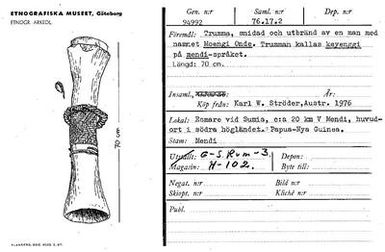 ETNOGRAFISKA MUSEET, Göteborg
ETNOGR. ARKEOL.
70 cm
Gen. n:r
94992
Saml. n:r
76.17.2
Dep. n:r
Föremål: Trumma, smidad och utbränd av en man med
namnet Moengi Onde. Trumman kallas keyenggi
på mendi-språket.
Längd: 70 cm.
Insaml.
Köp från: Karl W. Ströder, Austr. 1976
Lokal: Komare vid Sumia, c:a 20 km V Mendi, huvud-
ort i södra högländet. Papua-Nya Guinea.
Stam: Mendi
Utställt: G-S Rum-3
Depon:
Magasin: H-102.
Byte till:
Negat. n:r
Bild n:r
Skiopt. n:r
Kliché n:r
Publ.